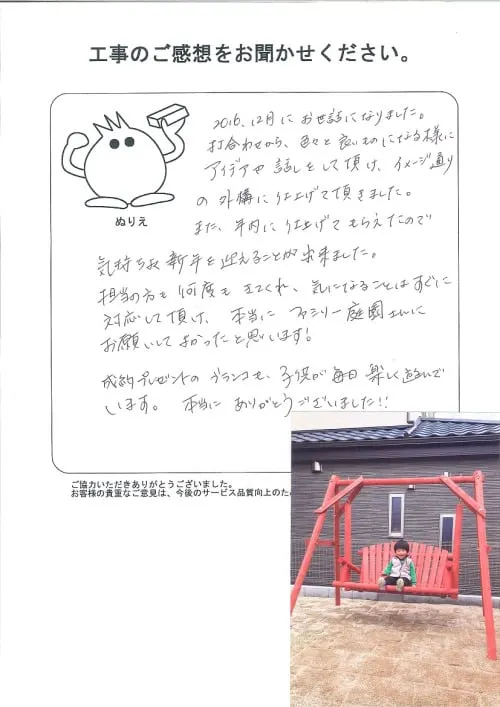 工事のご感想をお聞かせください。
ぬりえ
2016.12月にお世話になりました。
打合わせから、色々と良いものになる様に
アイデアや話しをして頂け、イメージ通り
の外構に仕上げて頂きました。
また、年内に仕上げてもらえたので
気持ちよく新年を迎えることが出来ました。
担当の方も何度もきてくれ、気になることはすぐに
対応して頂け、本当にファミリー庭園さんに
お願いしてよかったと思います!
成約プレゼントのブランコも、子供が毎日楽しく遊んで
います。 本当にありがとうございました!!
ご協力いただきありがとうございました。
お客様の貴重なご意見は、今後のサービス品質向上のため